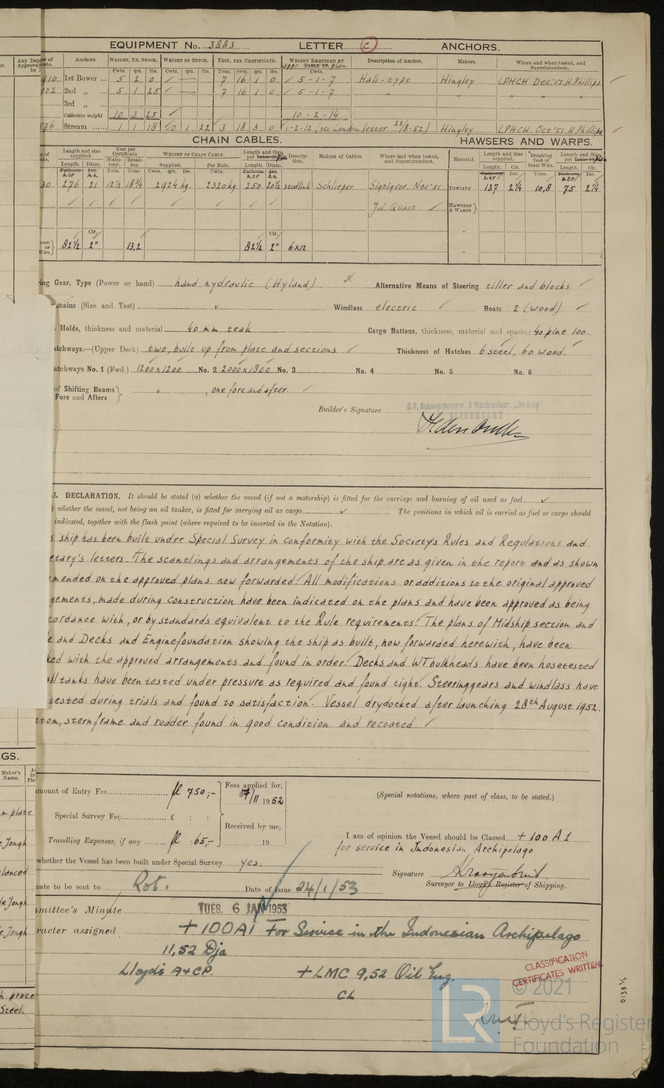 EQUIPMENT No. 3883 LETTER C ANCHORS.
Anchors. WEIGHT, EX. STOCK. WEIGHT OF STOCK. TEST, PER CERTIFICATE. WEIGHT REQUIRED BY Description of Anchor. Makers. Where and when tested, and Superintendent.
Cwts. qrs. lbs. Cwts. qrs. lbs. Tons. cwts. qrs. lbs. Cwts.
1st Bower 5 2 0 7 16 1 0 5-1-7 Hall-type Hingley LPHCH Dec'51. H. Phillips
2nd „ 5 1 25 7 16 1 0 5-1-7 „ „ „
3rd „
Collective weight 10 3 25 10-2-14
Stream 1 1 18 0 1 22 3 18 3 0 1-2-12 (see London letter 22/8-52) Hingley LPHCH. Oct'51. H. Phillips
CHAIN CABLES. HAWSERS AND WARPS.
Length and size supplied. Test per Certificate. WEIGHT OF CHAIN CABLE. Length and Size Description. Makers of Cables. Where and when tested, and Superintendent. Material. Length and size supplied. Breaking Test of Steel Wire. Length and Size
276 21 12½ 18¾ 2924 kg. 2320 kg. 250 20½ studlink Schlieper Signigvor. Nov'51 TOWLINE 137 2¼ 10,8 75 2¼
Jul. Quast HAWSERS & WARPS
82½ 2" 13,2 82½ 2" 6x12
ing Gear, Type (Power or hand) hand hydraulic (Hyland) Alternative Means of Steering tiller and blocks
hains (Size and Test) Windlass electric Boats 2 (wood)
Holds, thickness and material 40 mm teak Cargo Battens, thickness, material and spacing 40 pine 100.
atchways.—(Upper Deck) two, built up from plate and sections Thickness of Hatches 6 steel, 60 wood.
atchways No. 1 (Fwd.) 1200x1200 No. 2 2000x1800 No. 3 No. 4 No. 5 No. 6
of Shifting Beams Fore and Afters } „ , one fore and after.
Builder's Signature
L DECLARATION. It should be stated (a) whether the vessel (if not a motorship) is fitted for the carriage and burning of oil used as fuel
) whether the vessel, not being an oil tanker, is fitted for carrying oil as cargo The positions in which oil is carried as fuel or cargo should
indicated, together with the flash point (where required to be inserted in the Notation).
s ship has been built under Special Survey in conformity with the Society's Rules and Regulations and
etary's letters. The scantlings and arrangements of the ship are as given in the report and as shown
mended on the approved plans now forwarded. All modifications or additions to the original approved
gements, made during construction have been indicated on the plans and have been approved as being
cordance with, or by standards equivalent to the Rule requirements. The plans of Midship section and
e and Decks and Enginefoundation showing the ship as built, now forwarded herewith, have been
ked with the approved arrangements and found in order. Decks and WT bulkheads have been hosetested
ll tanks have been tested under pressure as required and found tight. Steeringgears and windlass have
tested during trials and found to satisfaction. Vessel drydocked after launching 28th August 1952.
tom, sternframe and rudder found in good condition and recoated.
mount of Entry Fee fl 750,- Fees applied for, /11 1952 (Special notations, where part of class, to be stated.)
Special Survey Fee £ : :
Received by me,
Travelling Expenses, if any fl 65,- 19
I am of opinion the Vessel should be Classed +100A1
for service in Indonesian Archipelago
whether the Vessel has been built under Special Survey. yes.
Signature
Surveyor to Lloyd's Register of Shipping.
cate to be sent to Rot. Date of issue 24/1/53
mmittee's Minute TUES. 6 JAN 1953
racter assigned +100A1 For Service in the Indonesian Archipelago
11,52 Dja
Lloyd's A&CP. +LMC 9,52 Oil Eng.
CL
CLASSIFICATION
CERTIFICATES WRITTEN
© 2021
LR Lloyd's Register
Foundation